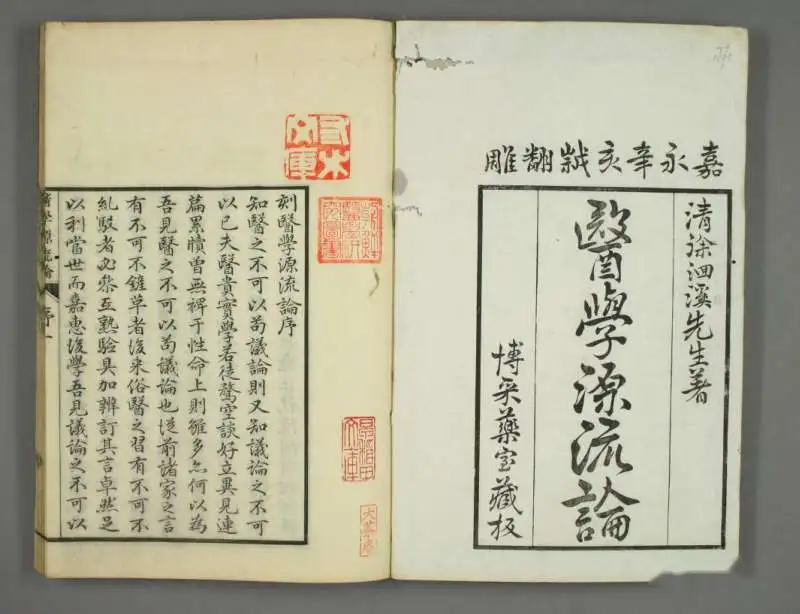 嘉永辛亥翻雕
清徐洄溪先生著
醫學源流論
博采藥室藏板
刻醫學源流論序
知醫之不可以苟議論則又知議論之不可
以已夫醫貴實學若徒騖空談好立異見連
篇累牘曾無裨于性命上則雖多亦何以為
吾見醫之不可以苟議論也從前諸家之言
有不可不草者後來俗醫之習有不可不
糺駁者必參互熟驗具加辨訂其言卓然足
以利當世而嘉惠後學吾見議論之不可以
醫學源流論
序
一
文庫
文庫